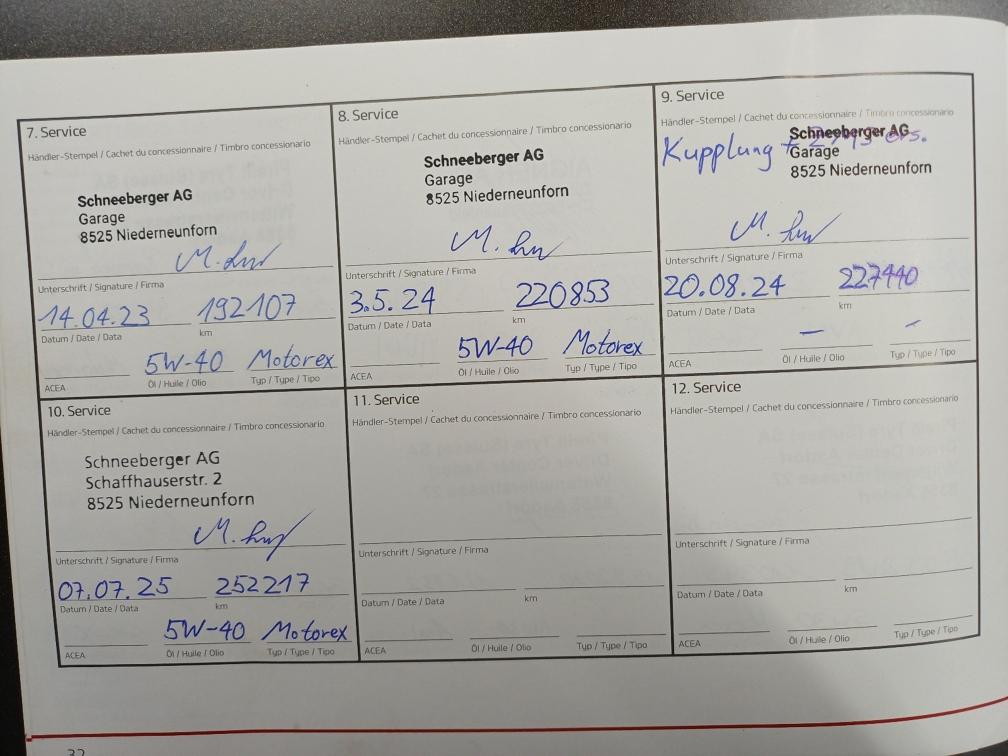 7. Service
Händler-Stempel / Cachet du concessionnaire / Timbro concessionario
Schneeberger AG
Garage
8525 Niederneunforn
Unterschrift / Signature / Firma
14.04.23 192107
Datum / Date / Data km
5W-40 Motorex
ACEA Öl / Huile / Olio Typ / Type / Tipo
8. Service
Händler-Stempel / Cachet du concessionnaire / Timbro concessionario
Schneeberger AG
Garage
8525 Niederneunforn
Unterschrift / Signature / Firma
3.5.24 220853
Datum / Date / Data km
5W-40 Motorex
ACEA Öl / Huile / Olio Typ / Type / Tipo
9. Service
Händler-Stempel / Cachet du concessionnaire / Timbro concessionario
Schneeberger AG
Kupplung
Garage
8525 Niederneunforn
Unterschrift / Signature / Firma
20.08.24 227440
Datum / Date / Data km
– –
ACEA Öl / Huile / Olio Typ / Type / Tipo
10. Service
Händler-Stempel / Cachet du concessionnaire / Timbro concessionario
Schneeberger AG
Schaffhauserstr. 2
8525 Niederneunforn
Unterschrift / Signature / Firma
07.07.25 252217
Datum / Date / Data km
5W-40 Motorex
ACEA Öl / Huile / Olio Typ / Type / Tipo
11. Service
Händler-Stempel / Cachet du concessionnaire / Timbro concessionario
Unterschrift / Signature / Firma
Datum / Date / Data km
ACEA Öl / Huile / Olio Typ / Type / Tipo
12. Service
Händler-Stempel / Cachet du concessionnaire / Timbro concessionario
Unterschrift / Signature / Firma
Datum / Date / Data km
ACEA Öl / Huile / Olio Typ / Type / Tipo